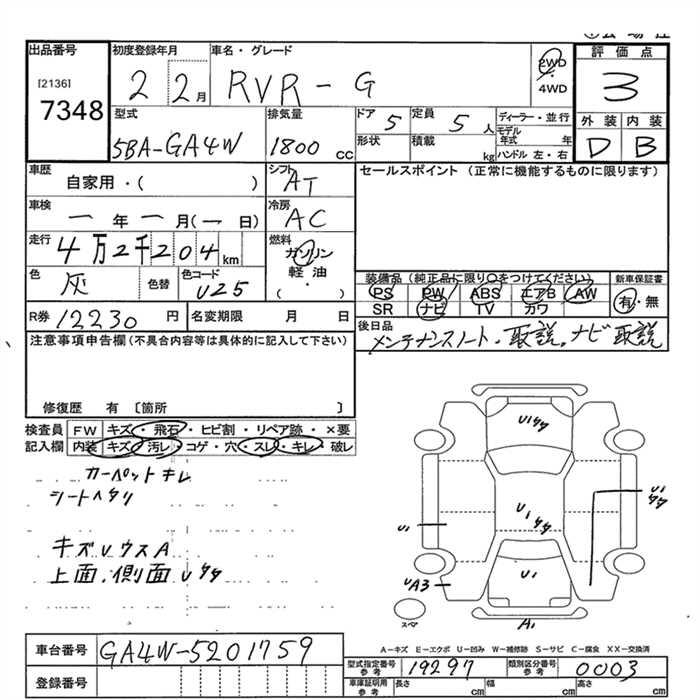 出品番号
[2136]
7348
初度登録年月
2 2月
車名・グレード
RVR-G
2WD
4WD
評価点
3
型式
5BA-GA4W
排気量
1800 CC
ドア 5
定員 5 人
形状
積載 kg
ディーラー・並行
モデル年式 年
ハンドル 左・右
外装 内装
D B
車歴
自家用・( )
シフト AT
セールスポイント (正常に機能するものに限ります)
車検
一年一月(一日)
冷房 AC
走行
4万2千204 km
燃料
ガソリン
軽油
( ・ )
色 灰
色替
色コード U25
装備品 (純正品に限り○をつけてください)
新車保証書
PS PW ABS エアB AW
SR ナビ TV カワ
有・無
R券 12230 円
名変期限 月 日
後日品
メンテナンスノート・取説。ナビ取説
注意事項申告欄(不具合内容等は具体的に記入して下さい)
修復歴 有 〔箇所 〕
検査員 FW キズ・飛石・ヒビ割・リペア跡・×要
記入欄 内装 キズ・汚レ・コゲ・穴・スレ・キレ・破レ
カーペットキレ
シートヘタリ
キズUウスA
上面、側面Uタタ
U1タタ
U1
タタ
U1タタ
U1
U1
UA3
A1
スペア
A-キズ E-エクボ U-凹み W-補修跡 S-サビ C-腐食 XX-交換済
車台番号 GA4W-5201759
型式指定番号 参考 19297
類別区分番号 参考 0003
登録番号
車庫証明用 参考
長さ cm
幅 cm
高さ cm